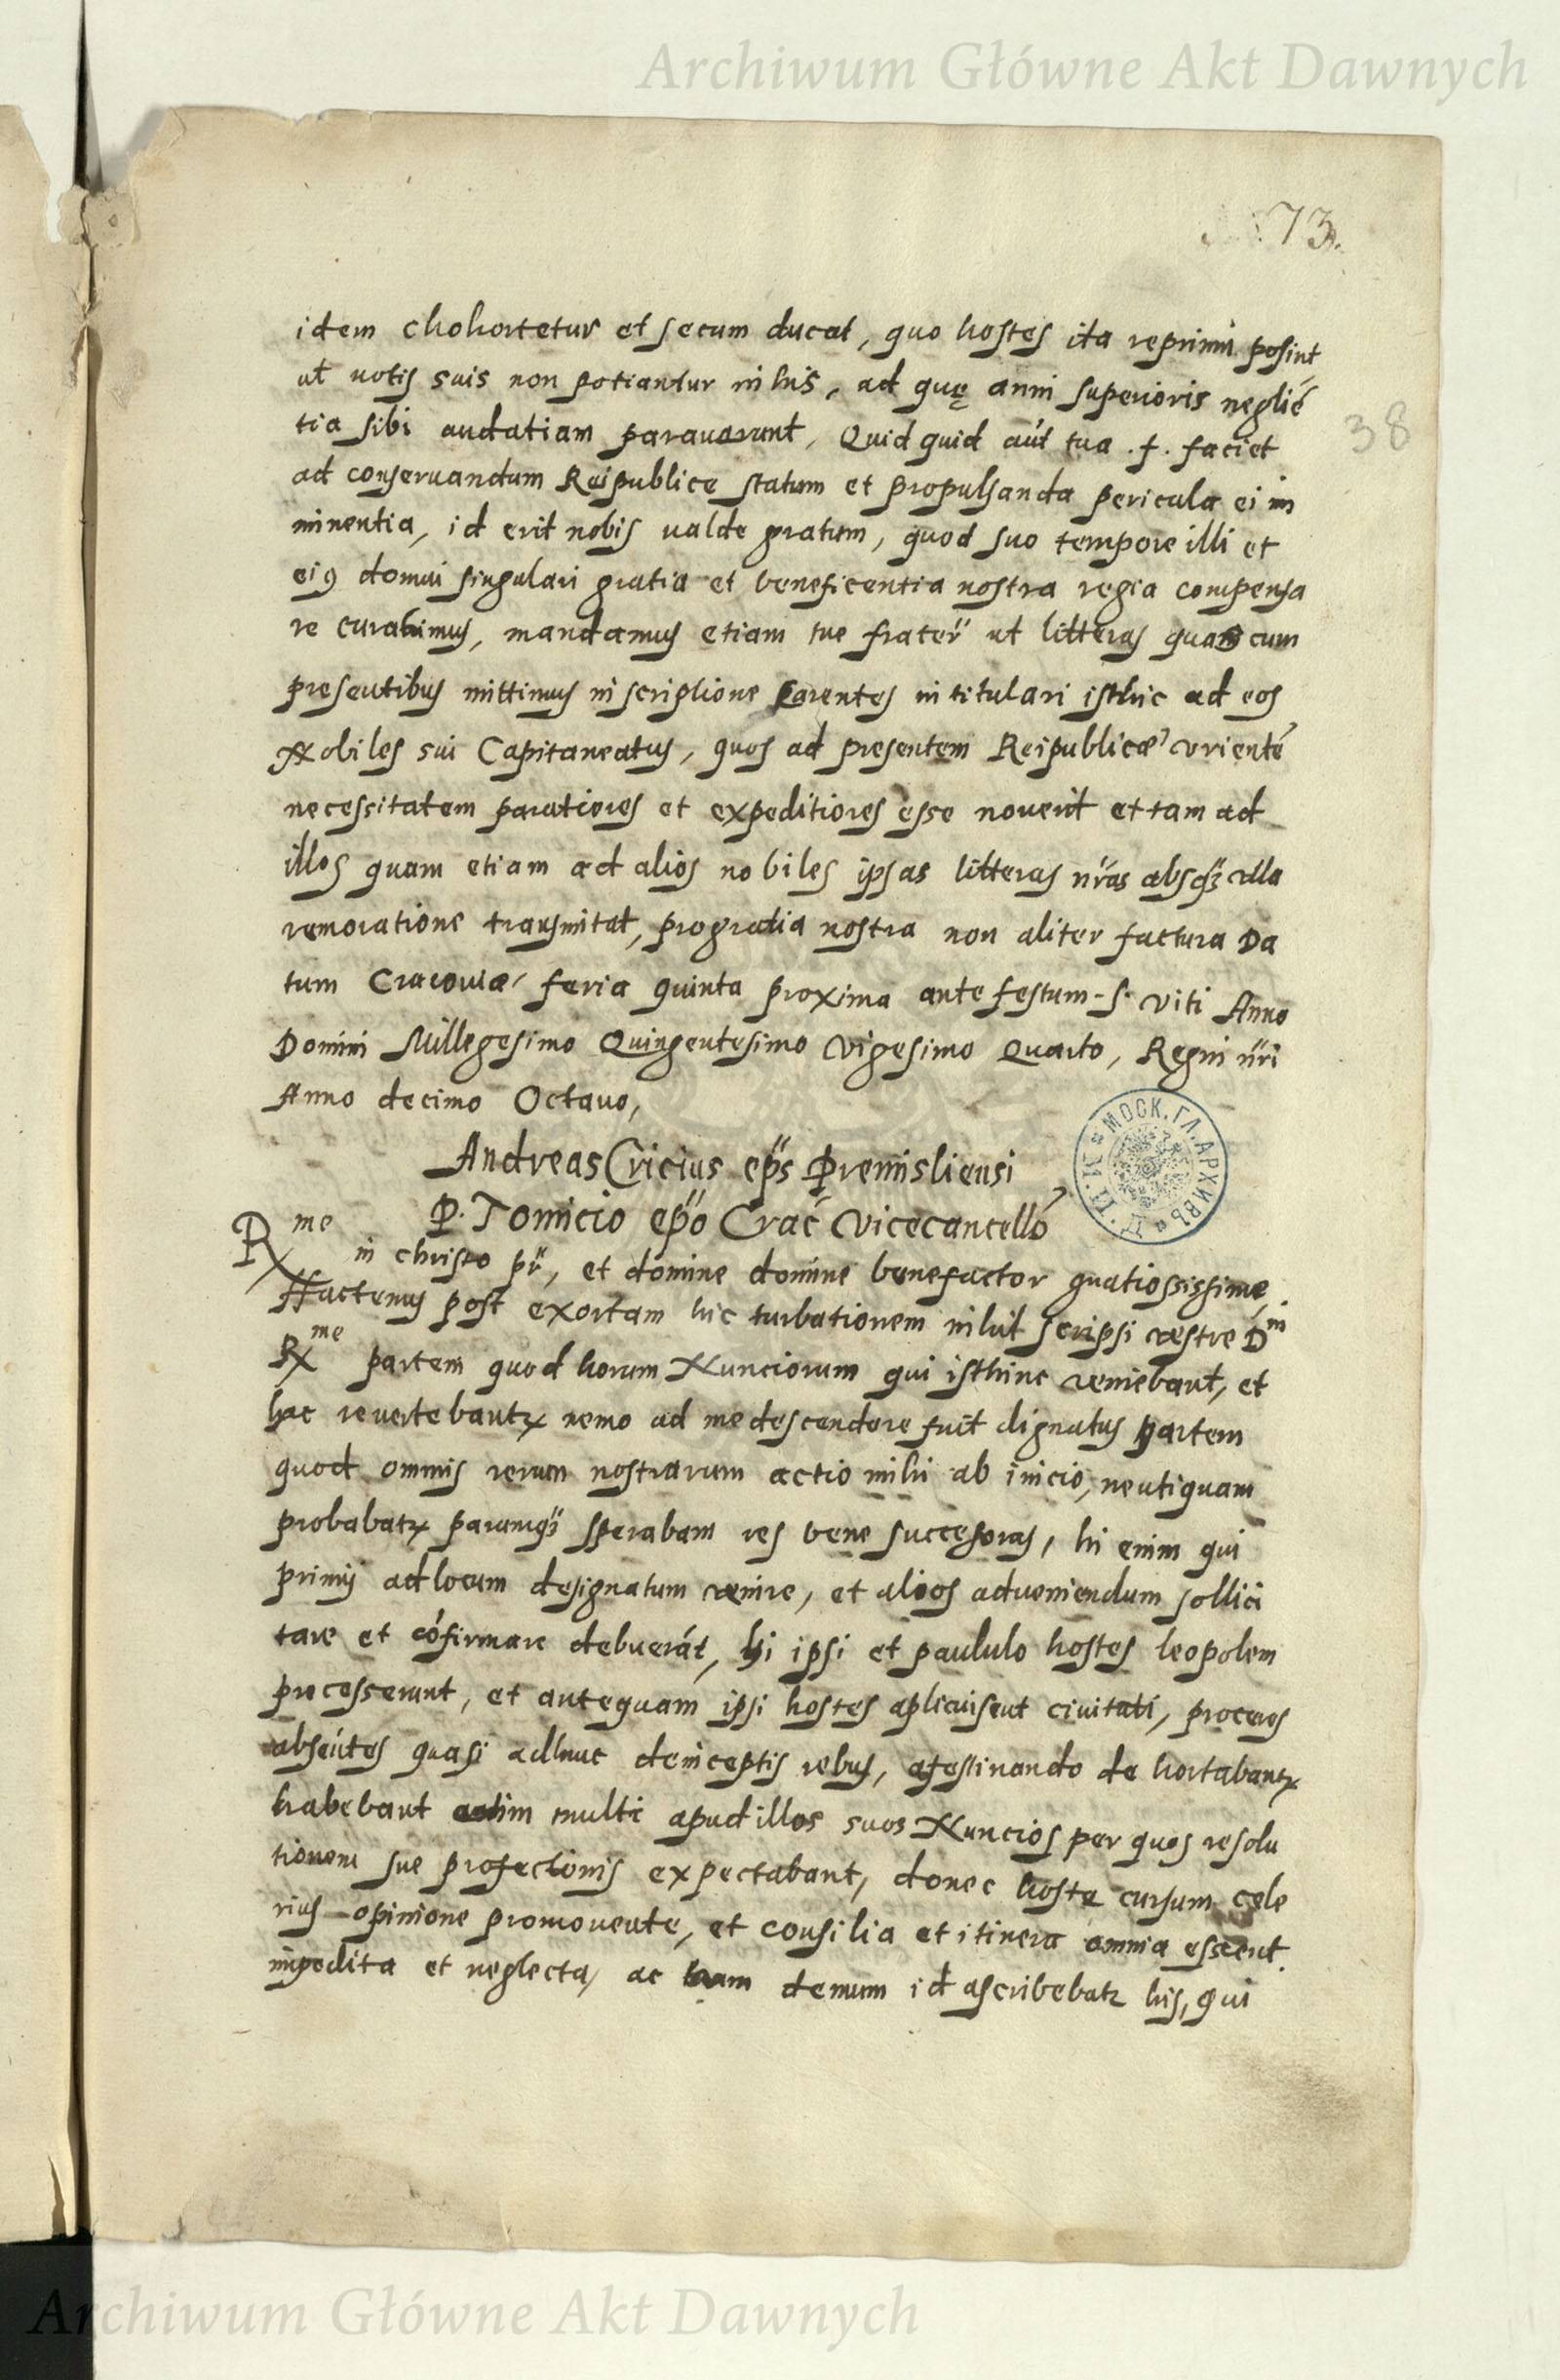 Archiwum Główne Akt Dawnych
73.
38
idem chohortetur et secum ducat, quo hostes ita reprimi posint
ut uotis suis non potiantur in his, ad quę anni superioris negliē
tia sibi audatiam parauarunt, Quid quid aūt tua .f. faciet
ad conseruandum Reipublice statum et propulsanda pericula ei im
minentia, id erit nobis ualde gratum, quod suo tempore illi et
eiꝰ domui singulari gratia et beneficentia nostra regia compensa
re curabimus, mandamus etiam tue frater̃ ut litteras quas cum
presentibus mittimus inscriptione carentes intitulari isthic ad eos
Nobiles sui Capitaneatus, quos ad presentem Reipublicæ vrientē
necessitatem paratiores et expeditiores esse nouerit et tam ad
illos quam etiam ad alios nobiles ipsas litteras nr̃as absqꝫ ulla
remoratione transmitat, pro gratia nostra non aliter factura Da
tum Cracouiæ feria quinta proxima ante festum S. Viti Anno
Domini Millegesimo Quingentesimo Vigesimo Quarto, Regni nr̃i
Anno decimo Octauo,
Andreas Cricius ep̃s Premisliensi
P. Tomicio ep̃o Crac̃ Vicecancello
Rme in christo pr̃, et domine domine benefactor gratiossissime,
Hactenus post exortam hic turbationem nihil scripsi vestre D
Rme partem quod horum Nunciorum qui isthinc veniebant, et
hac reuertebantꝝ nemo ad me descendere fuit dignatus partem
quod omnis rerum nostrarum actio mihi ab inicio, neutiquam
probabatꝝ parumqꝫ sperabam res bene successoras, hi enim qui
primi ad locum designatum venire, et alios adueniendum sollici
tare et cōfirmare debuerāt, hi ipsi et paululo hostes leopolem
precesserunt, et antequam ipsi hostes aplicuisent ciuitati, proceres
absētes quasi adhuc deinceptis rebus, afestinando de hortabantꝝ
habebant enim multi apud illos suos Nuncios per quos resolu
tionem sue profectionis expectabant, donec hoste cursum cele
rius opinione promouente, et consilia et itinera omnia essent
inpedita et neglecta, ac demum id ascribebatꝝ his, qui
МОСК. ГЛ. АРХИВЪ
Archiwum Główne Akt Dawnych